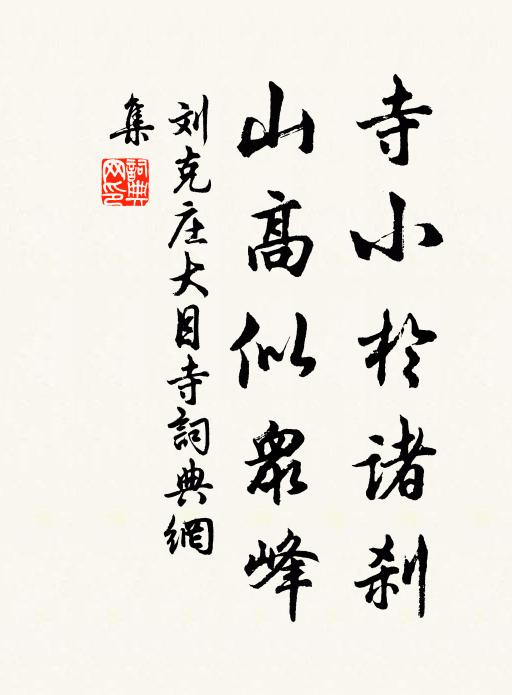 寺小於诸刹
山高似眾峰
刘克庄大目寺詞典網
集
詞典网印